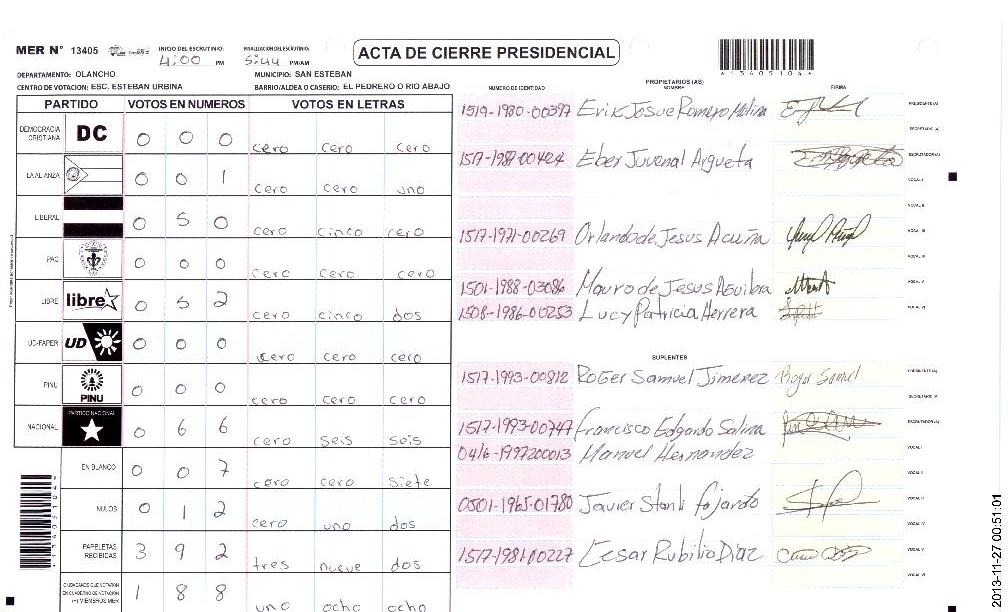 MER N° 13405 INICIO DEL ESCRUTINIO: 4:00 PM FINALIZACION DEL ESCRUTINIO: 5:44 PM/AM ACTA DE CIERRE PRESIDENCIAL
DEPARTAMENTO: OLANCHO MUNICIPIO: SAN ESTEBAN
CENTRO DE VOTACION: ESC. ESTEBAN URBINA BARRIO/ALDEA O CASERIO: EL PEDRERO O RIO ABAJO
PARTIDO VOTOS EN NUMEROS VOTOS EN LETRAS
DEMOCRACIA CRISTIANA DC 0 0 0 cero cero cero
LA ALIANZA 0 0 1 cero cero uno
LIBERAL 0 5 0 cero cinco cero
PAC 0 0 0 cero cero cero
LIBRE libre 0 5 2 cero cinco dos
UD-FAPER UD 0 0 0 cero cero cero
PINU PINU 0 0 0 cero cero cero
NACIONAL PARTIDO NACIONAL 0 6 6 cero seis seis
EN BLANCO 0 0 7 cero cero siete
NULOS 0 1 2 cero uno dos
PAPELETAS RECIBIDAS 3 9 2 tres nueve dos
CIUDADANOS QUE VOTARON EN CUADERNO DE VOTACION (+) MIEMBROS MER 1 8 8 uno ocho ocho
PROPIETARIOS (AS)
NUMERO DE IDENTIDAD NOMBRE FIRMA
1519-1980-00397 Erik Josue Romero Molina PRESIDENTE(A)
SECRETARIO (A)
1517-1987-00424 Eber Juvenal Argueta ESCRUTADOR(A)
VOCAL I
VOCAL II
1517-1971-00269 Orlando de Jesus Acuña VOCAL III
VOCAL IV
1501-1988-03086 Mauro de Jesus Aguilera VOCAL V
1508-1986-00253 Lucy Patricia Herrera VOCAL VI
SUPLENTES
1517-1993-00812 Roger Samuel Jimenez Roger Samuel PRESIDENTE(A)
SECRETARIO (A)
1517-1993-00747 Francisco Edgardo Salina ESCRUTADOR(A)
0416-1997200013 Manuel Hernandez VOCAL I
VOCAL II
0501-1965-01780 Javier Stanli Fajardo VOCAL III
VOCAL IV
1517-1981-00227 Cesar Rubilio Diaz VOCAL V
VOCAL VI
2013-11-27 00:51:01